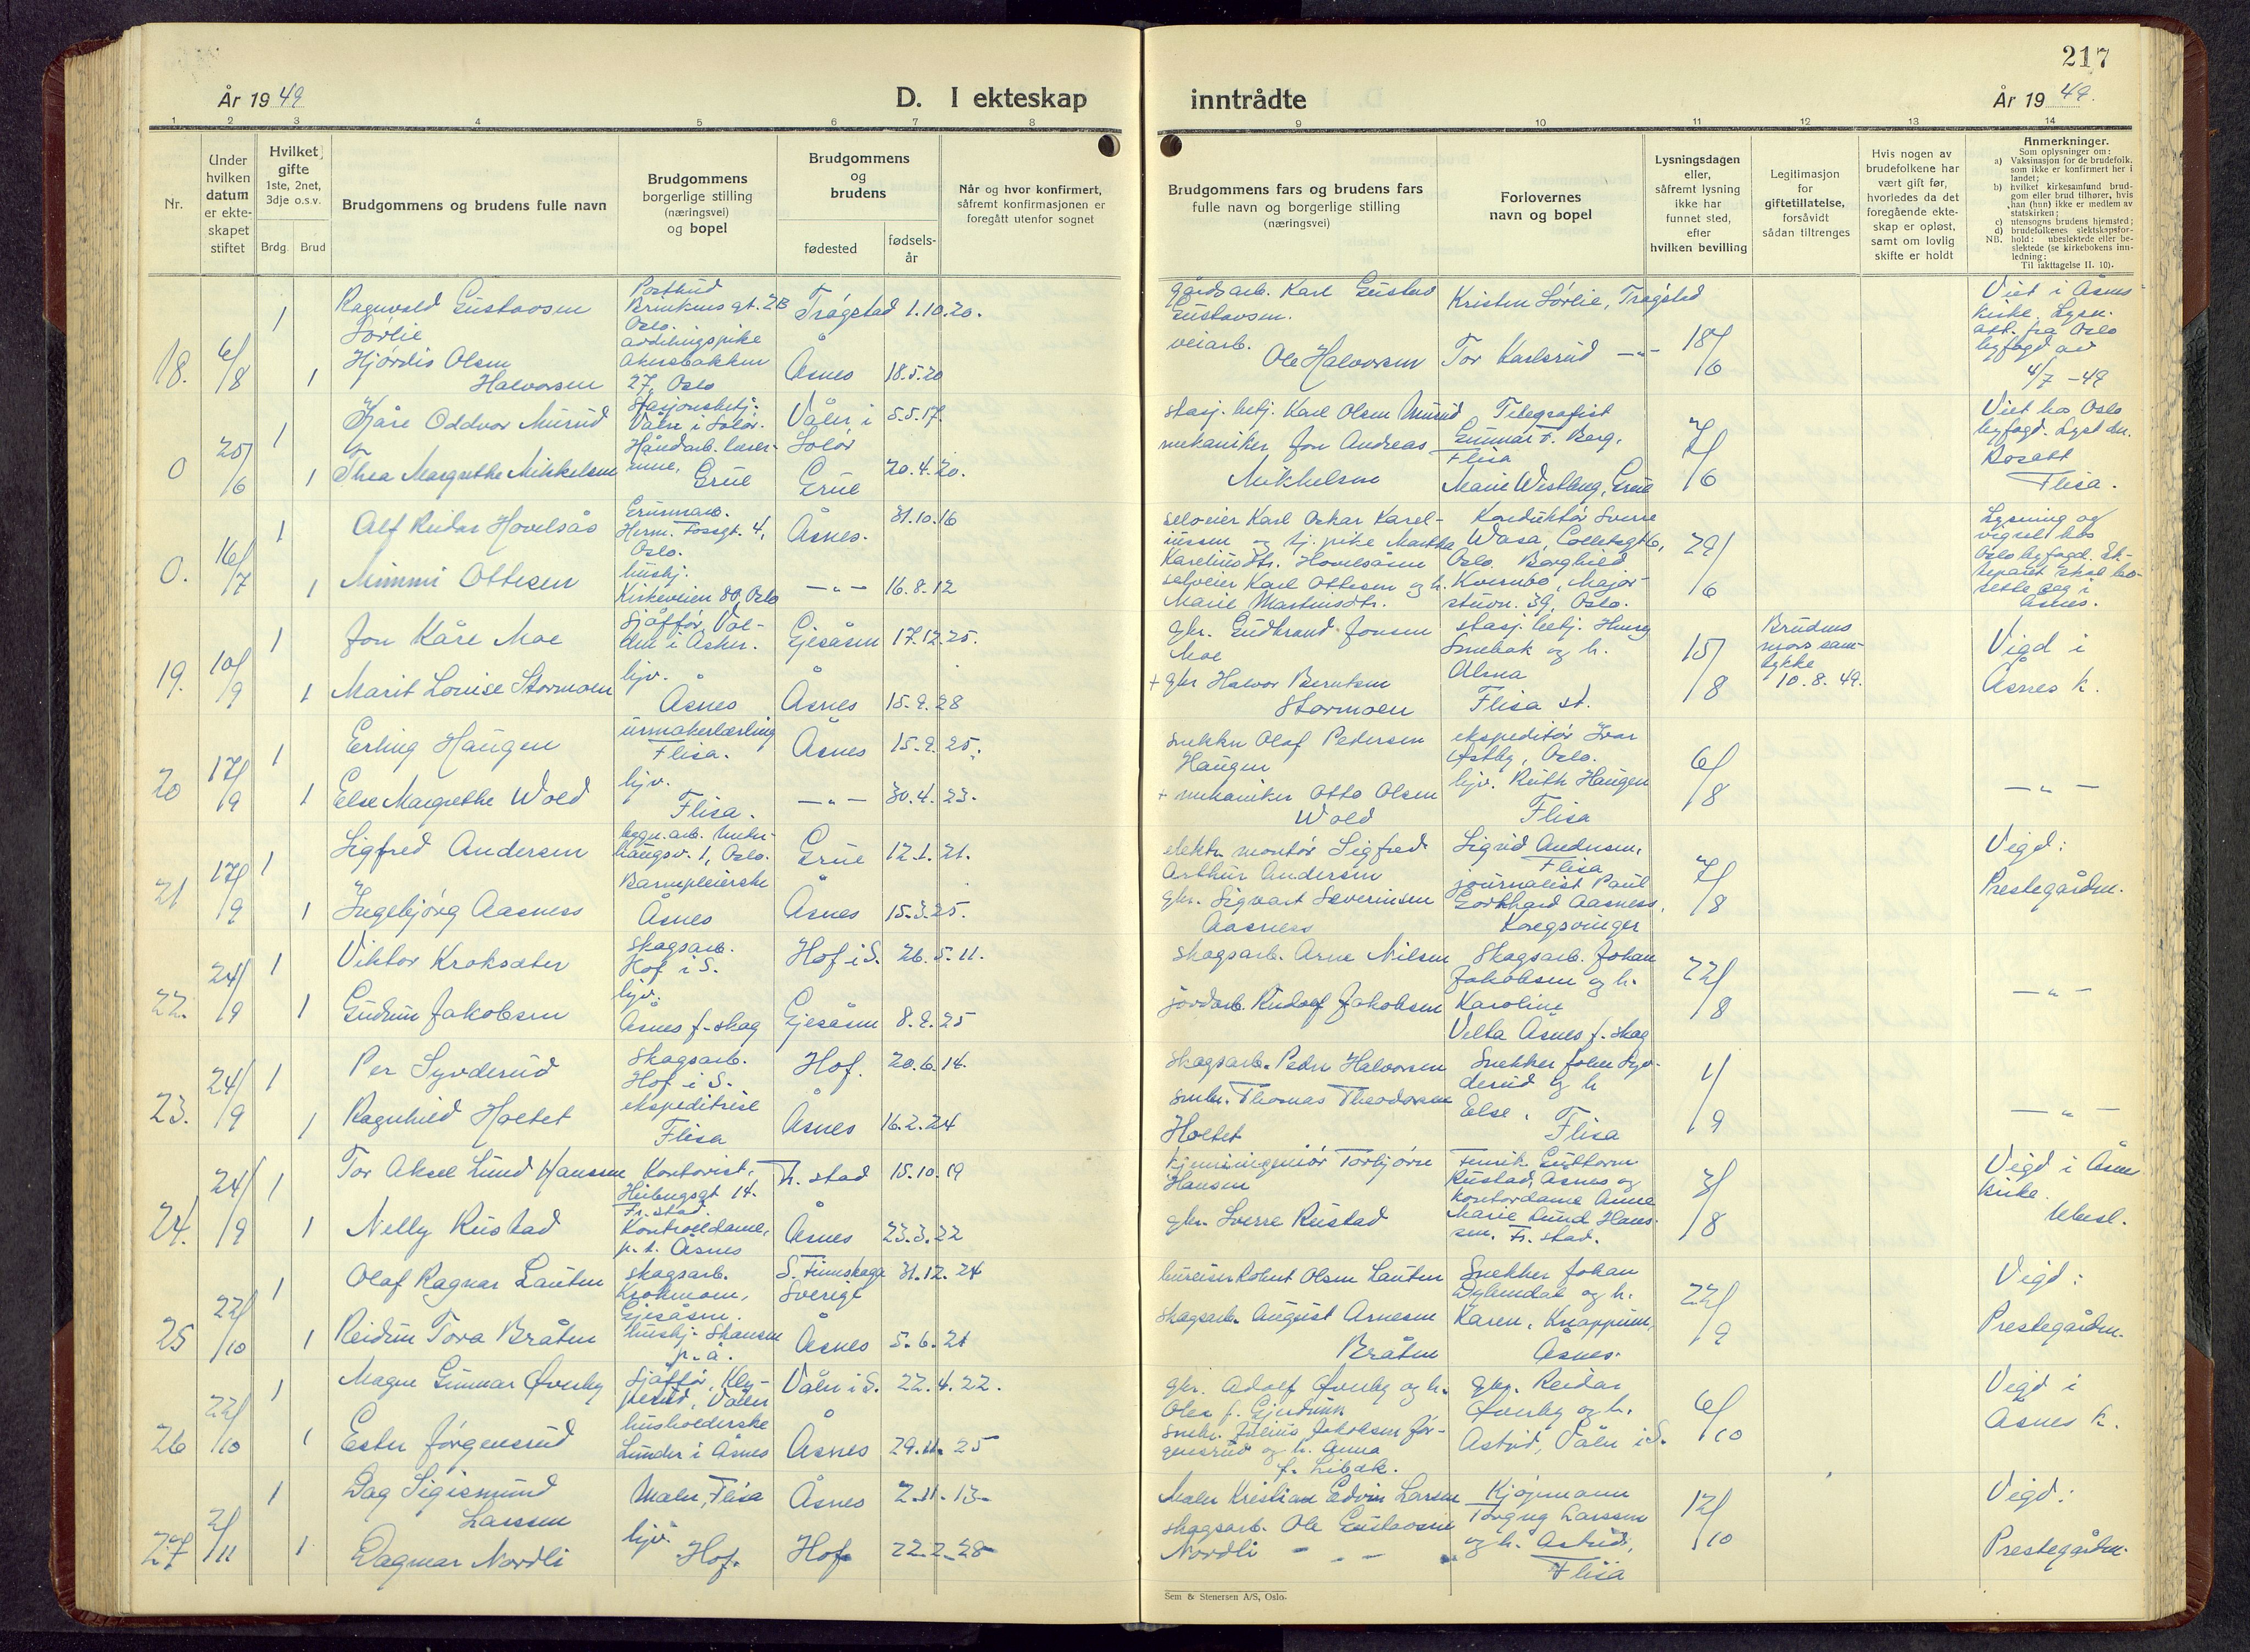 217
År 1949
D. I ekteskap
inntrådte
År 1949.
1 2 3 4 5 6 7 8 9 10 11 12 13 14
Nr.
Under
hvilken
datum
er ekte-
skapet
stiftet
Hvilket
gifte
1ste, 2net,
3dje o.s.v.
Brdg. Brud
Brudgommens og brudens fulle navn
Brudgommens
borgerlige stilling
(næringsvei)
og bopel
Brudgommens
og
brudens
fødested
fødsels-
år
Når og hvor konfirmert,
såfremt konfirmasjonen er
foregått utenfor sognet
Brudgommens fars og brudens fars
fulle navn og borgerlige stilling
(næringsvei)
Forlovernes
navn og bopel
Lysningsdagen
eller,
såfremt lysning
ikke har
funnet sted,
efter
hvilken bevilling
Legitimasjon
for
giftetillatelse,
forsåvidt
sådan tiltrenges
Hvis nogen av
brudefolkene har
vært gift før,
hvorledes da det
foregående ekte-
skap er opløst,
samt om lovlig
skifte er holdt
Anmerkninger.
Som oplysninger om:
a) Vaksinasjon for de brudefolk,
som ikke er konfirmert her i
landet;
b) hvilket kirkesamfund brud-
gom eller brud tilhører, hvis
han (hun) ikke er medlem av
statskirken;
c) utensogns brudens hjemsted;
d) brudefolkenes slektskapsfor-
hold: ubeslektede eller be-
slektede (se kirkebokens inn-
ledning;
NB. Til iakttagelse II. 10).
18. 6/8
1 Ragnvald Gustavsen
Sørlie
Postbud
Brinkens gt. 2B
Oslo.
Trøgstad 1.10.20.
1 Hjørdis Olsen
Halvorsen
avdelingspike
Akersbakken
27, Oslo
Åsnes 18.5.20
gårdsarb. Karl Gustav
Gustavsen.
veiarb.
Ole Halvorsen
Kristen Sørlie, Trøgstad
Tor Karlsrud —"—
18/6
Viet i Åsnes
kirke. Lysn.
att. fra Oslo
byfogd av
4/7 -49
0 25/6
1 Kåre Oddvar Murud
Stasjonsbetj.
Våler i Solør.
Våler i
Solør
5.5.17.
1 Thea Margrethe Mikkelsen
Håndarb. lærer-
inne,
Grue
Grue 20.4.20.
stasj. betj. Karl Olsen Murud
mekaniker Jon Andreas
Mikkelsen
Telegrafist
Gunnar F. Berg,
Flisa
Marie Westberg, Grue
7/6
Viet hos Oslo
byfogd. Lyst der.
Bosatt
Flisa.
0. 16/7
1 Alf Reidar Hovelsås
Grunnarb.
Herm. Fossgt. 4,
Oslo.
Åsnes. 31.10.16
1 Mimmi Ottesen
hushj.
Kirkeveien 80, Oslo
—"— 16.8.12
selveier Karl Oskar Karel-
iussen og tj. pike Martha
Kareliusdtr. Hovelsåsen
selveier Karl Ottesen og h.
Marie Martinsdtr.
Konduktør Sverre
Wasa, Colletsgt 6,
Oslo. Borghild
Kvernbo, Major-
stuvn. 39, Oslo.
29/6
Lysning og
vigsel hos
Oslo byfogd. Ek-
teparet skal bo-
sette seg i
Åsnes.
19. 10/9
1 Jon Kåre Moe
Sjåfør, Val-
len i Asker.
Gjesåsen 17.12.25.
1 Marit Louise Stormoen
hjv.
Åsnes
Åsnes 15.9.28
gbr. Gudbrand Jonsen
Moe
+ gbr Halvor Berntsen
Stormoen
stasj. betj. Henry
Smebak og h.
Alma
Flisa st.
15/8
Brudens
mors sam-
tykke
10.8.49.
Vigd i
Åsnes k.
20 17/9
1 Erling Haugen
urmakerlærling
Flisa.
Åsnes 15.9.25.
1 Else Margrethe Wold
hjv.
Flisa.
—"— 30.4.23.
snekker Olaf Pedersen
Haugen
+ mekaniker Otto Olsen
Wold
ekspeditør Ivar
Østby, Oslo.
hjv. Ruth Haugen
Flisa
6/8
—"—
21 17/9
1 Sigfred Andersen
bygn.arb.
haugsv. 1, Oslo.
Grue 12.1.21.
1 Ingebjørg Aasness
Barnepleierske
Åsnes
Åsnes 15.3.25.
elektr. montør Sigfred
Arthur Andersen
gbr. Sigvart Severinsen
Aasness
Sigrid Andersen,
Flisa
journalist Paul
Gothard Aasness,
Kongsvinger
7/8
Vigd:
Prestegården.
22. 24/9
1 Viktor Kroksæter
Skogsarb.
Hof i S.
Hof i S. 26.5.11.
1 Gudrun Jakobsen
hjv.
Åsnes f.-skog
Gjesåsen 8.9.25
skogsarb. Arne Nilsen
jordarb. Rudolf Jakobsen
Skogsarb. Johan
Jakobsen og h.
Karoline
Velta Åsnes f. skog
22/8
—"—
23. 24/9
1 Per Syvderud
Skogsarb.
Hof i S.
Hof. 20.6.14.
1 Ragnhild Holtet
ekspeditrise
Flisa
Åsnes 16.2.24
Skogsarb. Peder Halvorsen
smbr. Thomas Theodorsen
Holtet
Snekker John Syv-
derud og h
Else.
Flisa
1/9
—"—
24. 24/9
1 Tor Aksel Lund Hanssen
Kontorist,
Heibergsgt 14.
Fr.stad.
Fr. stad 15.10.19
1 Nelly Rustad
Kontrolldame,
p.t. Åsnes
Åsnes 23.3.22
kjemiingeniør Torbjørn
Hansen
gbr. Sverre Rustad
Fenrik Guttorm
Rustad, Åsnes og
kontordame Anne
Marie Lund Hans-
sen. Fr. stad.
3/8
Vigd i Åsnes
kirke.
Ubesl.
25 22/10
1 Olaf Ragnar Lauten
skogsarb.
Krokmoen,
Gjesåsen.
S. Finnskoga
Sverige
31.12.24
1 Reidun Tora Bråten
hushj. Skansen
p.å.
Åsnes 5.6.21
bureiser Robert Olsen Lauten
Skogsarb. August Arnesen
Bråten
Snekker Johan
Dylendal og h.
Karen, Knappum,
Åsnes.
22/9
Vigd:
Prestegården.
26 22/10
1 Magne Gunnar Øverby
Sjåfør,
Våler
Våler i S. 22.4.22.
1 Ester Jørgensrud
husholderske
Lunder i Åsnes
Åsnes 29.11.25
gbr. Adolf Øverby og h.
Olea f. Gjerdrum
smbr. Julius Jakobsen Jør-
gensrud og h. Anna
f. Libæk.
gbr. Reidar
Øverby og h.
Astrid, Våler i S.
6/10
Vigd i
Åsnes k.
27 2/11
1 Dag Sigismund
Larssen
Maler, Flisa
Åsnes 2.11.13.
1 Dagmar Nordli
hjv.
Hof.
Hof. 22.2.28
Maler Kristian Edvin Larsen
skogsarb. Ole Gustavsen
Nordli
Kjøpmann
Torgny Larssen
og h. Astrid,
Flisa
12/10
Vigd:
Prestegården.
Sem & Stenersen A/S, Oslo.